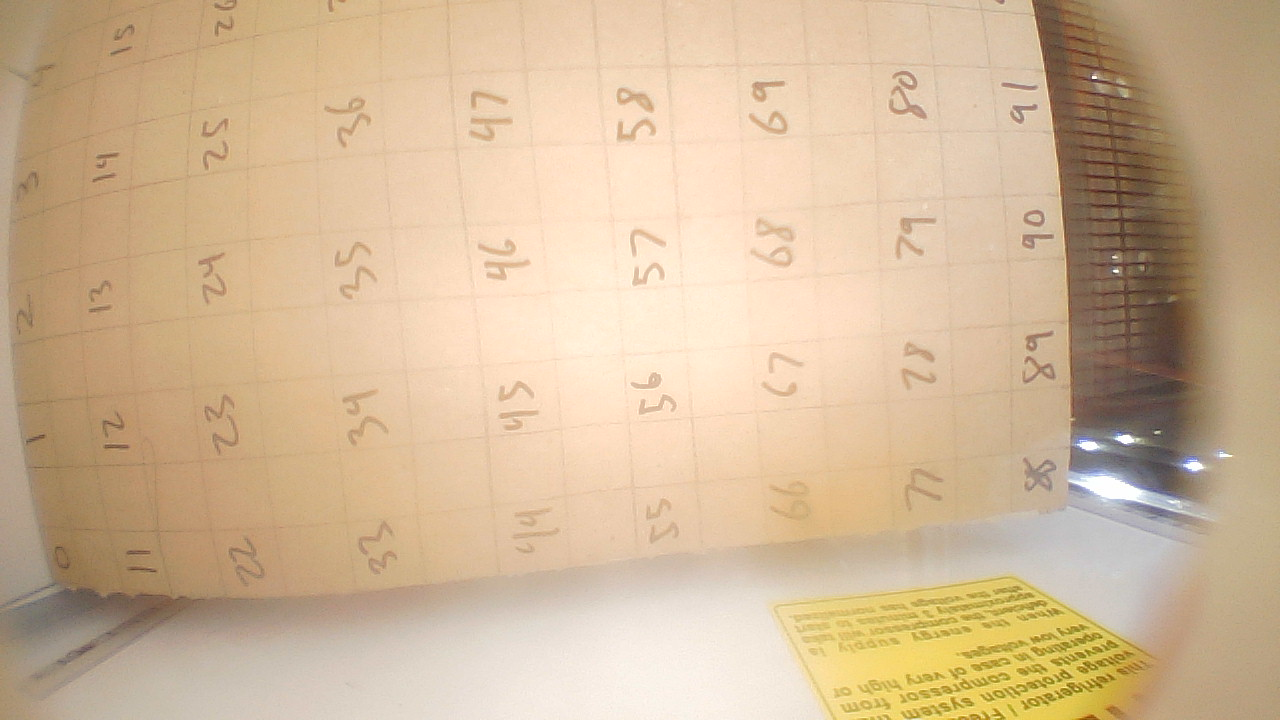 0 1 2 3 4
11 12 13 14 15
22 23 24 25 26
33 34 35 36
44 45 46 47
55 56 57 58
66 67 68 69
77 78 79 80
88 89 90 91
This refrigerator
voltage protection system
prevents the compressor from
operating in case of very high or
very low voltages.
When the energy supply is
deficient, the compressor will
approximately 3 minutes to
after the voltage has